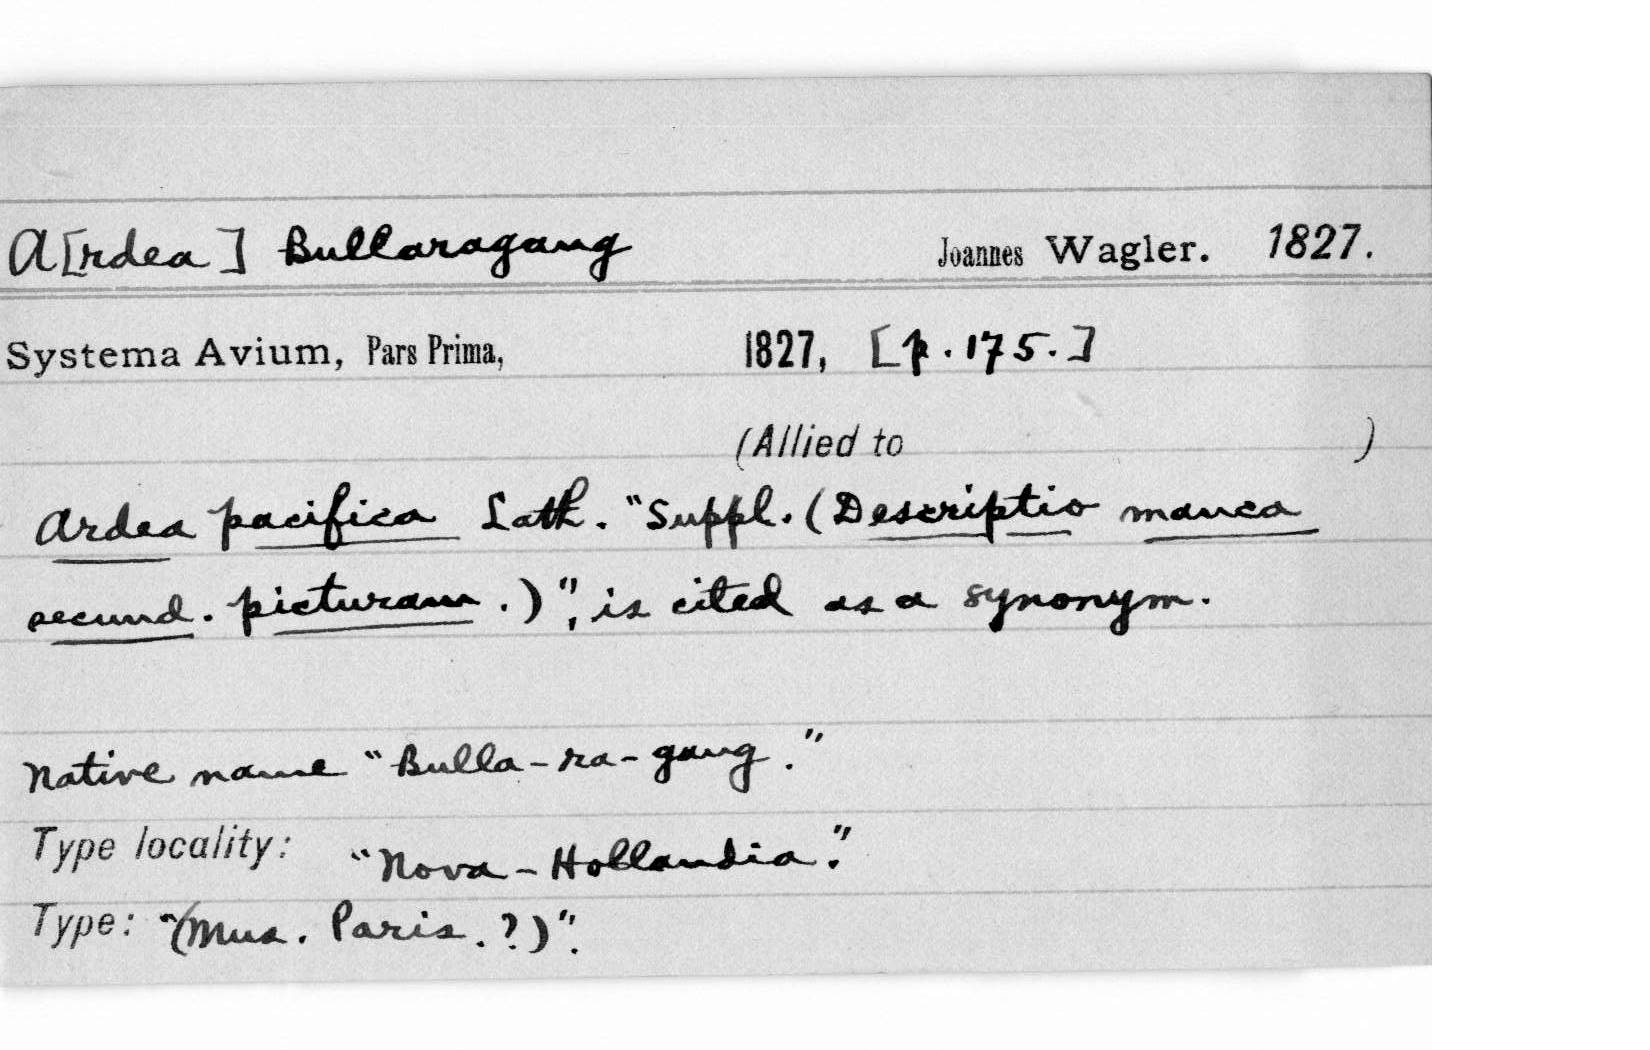 A[rdea] Bullaragang Joannes Wagler. 1827.
Systema Avium, Pars Prima, 1827, [p. 175.]
(Allied to )
Ardea pacifica Lath. "Suppl. (Descriptio manca
secund. picturam.)", is cited as a synonym.
Native name "Bulla-ra-gang."
Type locality: "Nova-Hollandia."
Type: "(Mus. Paris.?)".